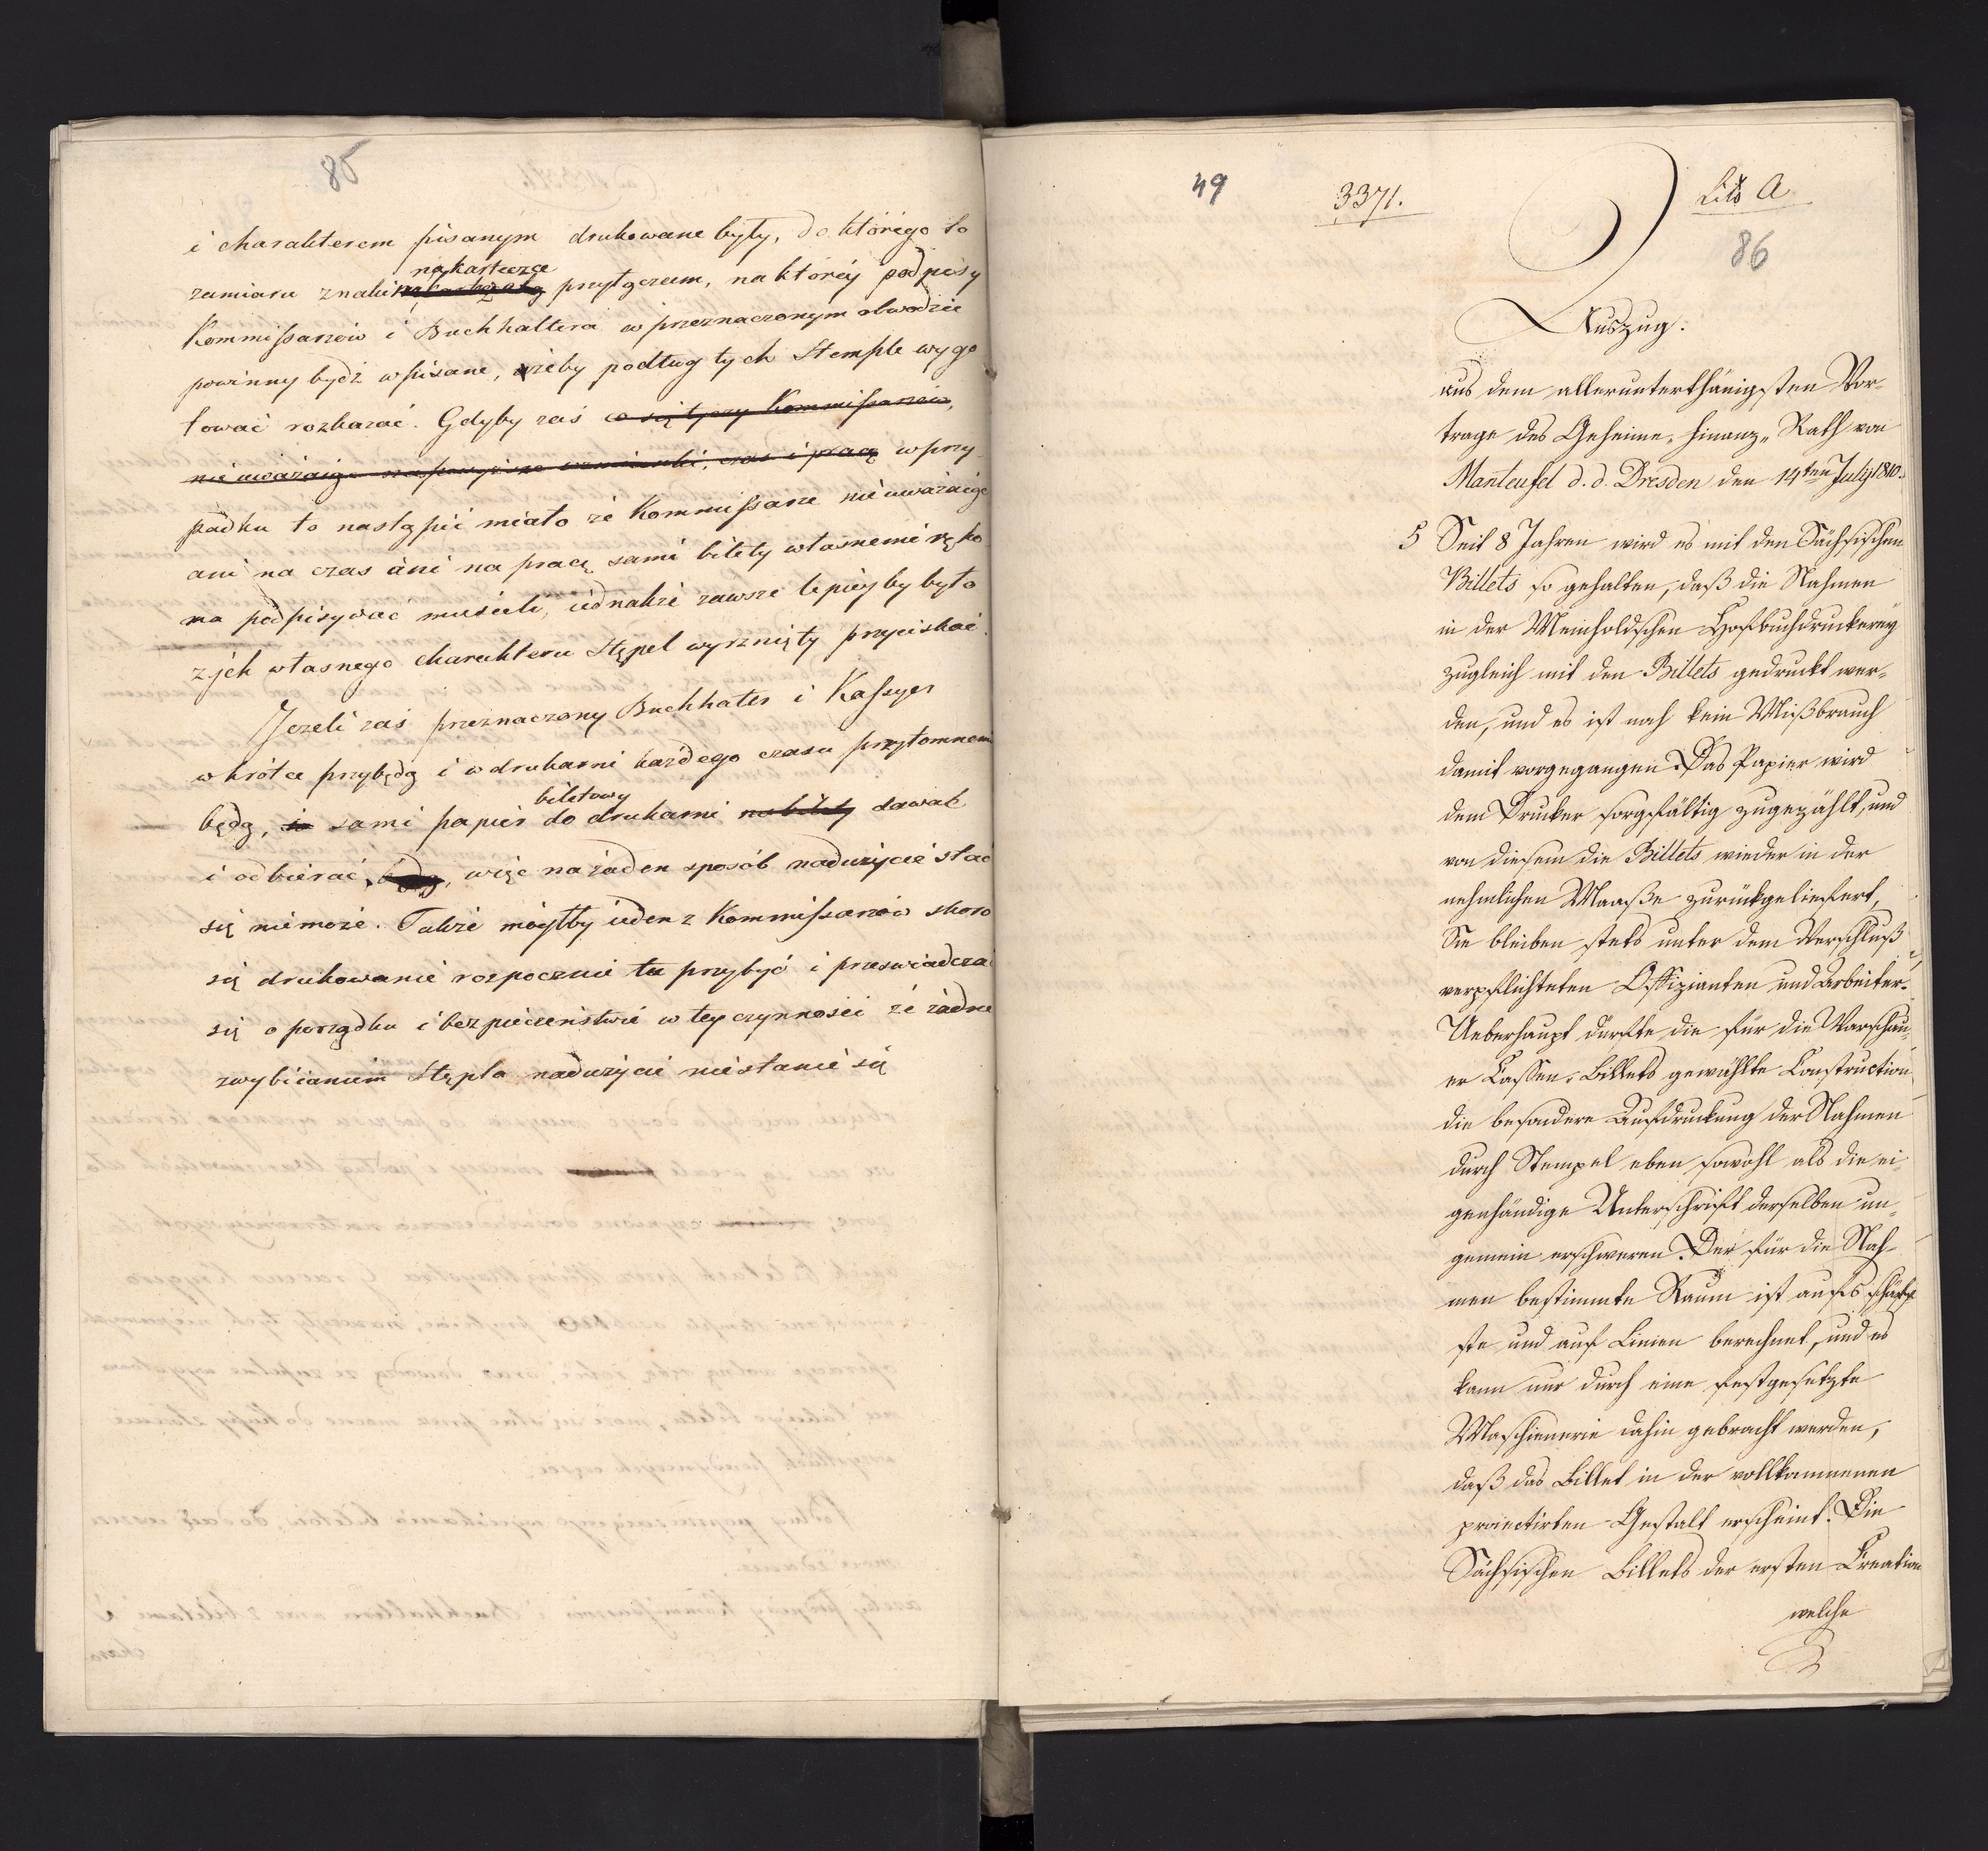 85
i charakterem pisanym drukowane były, do którego to
na kartecze
zamiaru znaki przyłączam, na któréy podpisy
Kommißarzów i Buchhaltera w przeznaczonym obwodzie
powinny bydź wpisane, żeby podług tych Stemple wygo
tować rozkazać. Gdyby zaś co się tyczy Kommißarzów,
nie uważaiąc na powyższe warunki, czas i pracę w przy
padku to nastąpić miało że Kommißarze nie uważaiąc
ani na czas ani na pracę sami bilety własnemi ręko
ma podpisywać musieli, iednakże zawsze lepiéy by było
z jch własnego charakteru Stępel wyrznięty przyciskać.
Jeżeli zaś przeznaczony Buchhalter i Kaßyer
wkrótce przybędą i w drukarni każdego czasu przytomnemi
biletowy
będą, i sami papier do drukarni na bilety dawać
i odbierać będą, więc na żaden sposób nadużycie stać
się niemoże. Także mógłby ieden z Kommißarzów skoro
się drukowanie rozpocznie tu przybyć i przeświadczać
się o porządku i bezpieczeństwie w tey czynności że żadne
z wybiianiem Stępla nadużycie niestanie się
49
3371.
Litt A
86
Auszug.
aus dem allerunterthänigsten Vor-
trage des Geheime- Finanz- Rath von
Manteufel d. d. Dresden den 14ten July 1810.
5 Seit 8 Jahren wird es mit den Sächsischen
Billets so gehalten, daß die Nahmen
in der Meinholdschen Hofbuchdruckerey
zugleich mit den Billets gedruckt wer-
den, und es ist noch kein Mißbrauch
damit vorgegangen. Das Papier wird
dem Drucker sorgfältig zugezählt, und
von diesem die Billets wieder in der
nehmlichen Maaße zurückgeliefert,
Sie bleiben stets unter dem Verschluß
verpflichteten Offizianten und Arbeiter.
Ueberhaupt dürfte die für die Warschau-
er Cassen-Billets gewählte Construction
die besondere Aufdruckung der Nahmen
durch Stempel eben sowohl als die ei-
genhändige Unterschrift derselben un-
gemein erschweren. Der für die Nah-
men bestimmte Raum ist aufs schärf
ste und auf Linien berechnet, und es
kann nur durch eine festgesetzte
Maschienerie dahin gebracht werden,
daß das Billet in der vollkommenen
projectirten Gestalt erscheint. Die
Sächsischen Billets der ersten Creation
welche